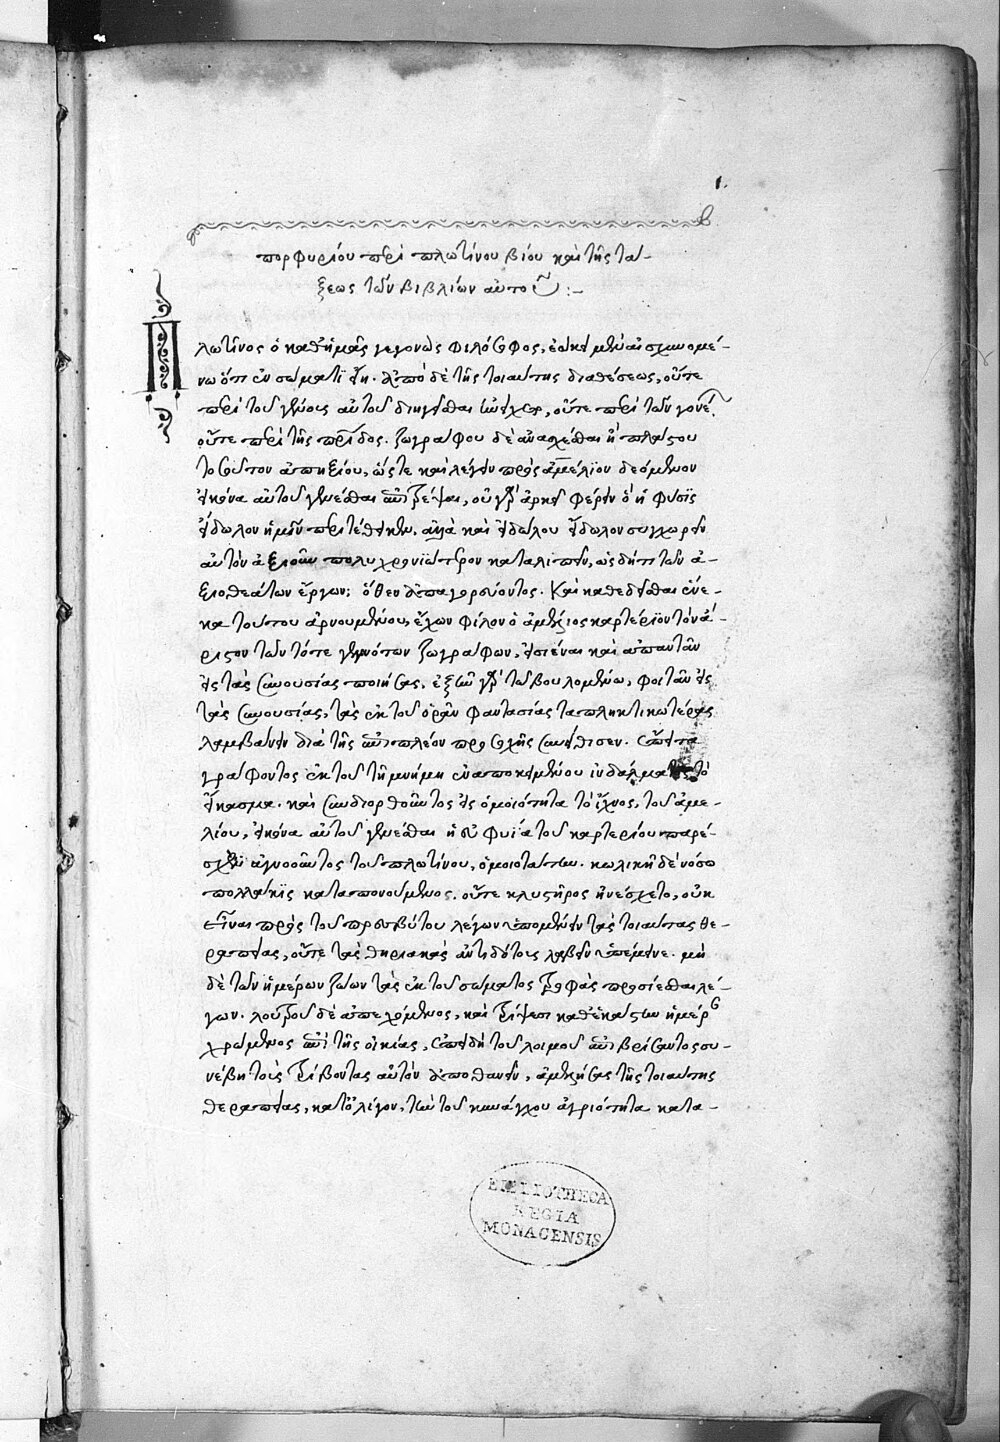 1.
πορφυρίου περὶ πλωτίνου βίου καὶ τῆς τά-
ξεως τῶν βιβλίων αὐτοῦ :-
Πλωτῖνος ὁ καθ' ἡμᾶς γεγονὼς φιλόσοφος, ἐῴκει μὲν αἰσχυνομέ-
νω ὅτι ἐν σώματι εἴη. ἀπὸ δὲ τῆς τοιαύτης διαθέσεως, οὔτε
περὶ τοῦ γένους αὐτοῦ διηγεῖσθαι ἠνείχετο, οὔτε περὶ τῶν γονέων.
οὔτε περὶ τῆς πατρίδος. ζωγράφου δὲ ἀνασχέσθαι ἢ πλάστου
τοσοῦτον ἀπηξίου, ὥστε καὶ λέγειν πρὸς ἀμέλιον δεόμενον
εἰκόνα αὐτοῦ γενέσθαι ἐπιτρέψαι, οὐ γὰρ ἀρκεῖ φέρειν ὃ ἡ φύσις
εἴδωλον ἡμῖν περιτέθεικεν, ἀλλὰ καὶ εἰδώλου εἴδωλον συγχωρεῖν
αὐτὸν ἀξιοῦν πολυχρονιώτερον καταλιπεῖν, ὡς δή τι τῶν ἀ-
ξιοθεάτων ἔργων; ὅθεν ἀπαγορεύοντος. Καὶ καθεδεῖσθαι ἕνε-
κα τούτου ἀρνουμένου, ἔχων φίλον ὁ ἀμέλιος καρτέριον τὸν ἄ-
ριστον τῶν τότε γεγονότων ζωγράφων, εἰσιέναι καὶ ἀπαντᾶν
εἰς τὰς συνουσίας ποιήσας, ἐξὸν γὰρ τῷ βουλομένῳ, φοιτᾶν εἰς
τὰς συνουσίας, τὰς ἐκ τοῦ ὁρᾶν φαντασίας τὰ πληκτικωτέρας
λαμβάνειν διὰ τῆς ἐπιπλέον προσοχῆς συνείθισεν. ἔπειτα
γράφοντος ἐκ τοῦ τῇ μνήμῃ ἐναποκειμένου ἰνδάλματος τὸ
εἴκασμα. καὶ συνδιορθοῦντος εἰς ὁμοιότητα τὸ ἴχνος, τοῦ ἀμε-
λίου, εἰκόνα αὐτοῦ γενέσθαι ἡ εὐφυΐα τοῦ καρτερίου παρέ-
σχεν ἀγνοοῦντος τοῦ πλωτίνου, ὁμοιοτάτην. κωλικῇ δὲ νόσω
πολλάκις καταπονούμενος, οὔτε κλυστῆρος ἠνέσχετο, οὐκ
εἶναι πρὸς τοῦ πρεσβύτου λέγων ὑπομένειν τὰς τοιαύτας θε-
ραπείας, οὔτε τὰς θηριακὰς ἀντιδότους λαβεῖν ὑπέμεινε. μὴ
δὲ τῶν ἡμέρων ζώων τὰς ἐκ τοῦ σώματος τροφὰς προσίεσθαι λέ-
γων. λουτροῦ δὲ ἀπεχόμενος, καὶ τρίψεσι καθ' ἑκάστην ἡμέραν
χρώμενος ἐπὶ τῆς οἰκίας, ἐπειδὴ τοῦ λοιμοῦ ἐπιβρίσαντος συ-
νέβη τοὺς τρίβοντας αὐτὸν ἀποθανεῖν, ἀμελήσας τῆς τοιαύτης
θεραπείας, κατ' ὀλίγον, τὴν τοῦ κυνάγχου ἀγριότητα κατα-
BIBLIOTHECA
REGIA
MONACENSIS